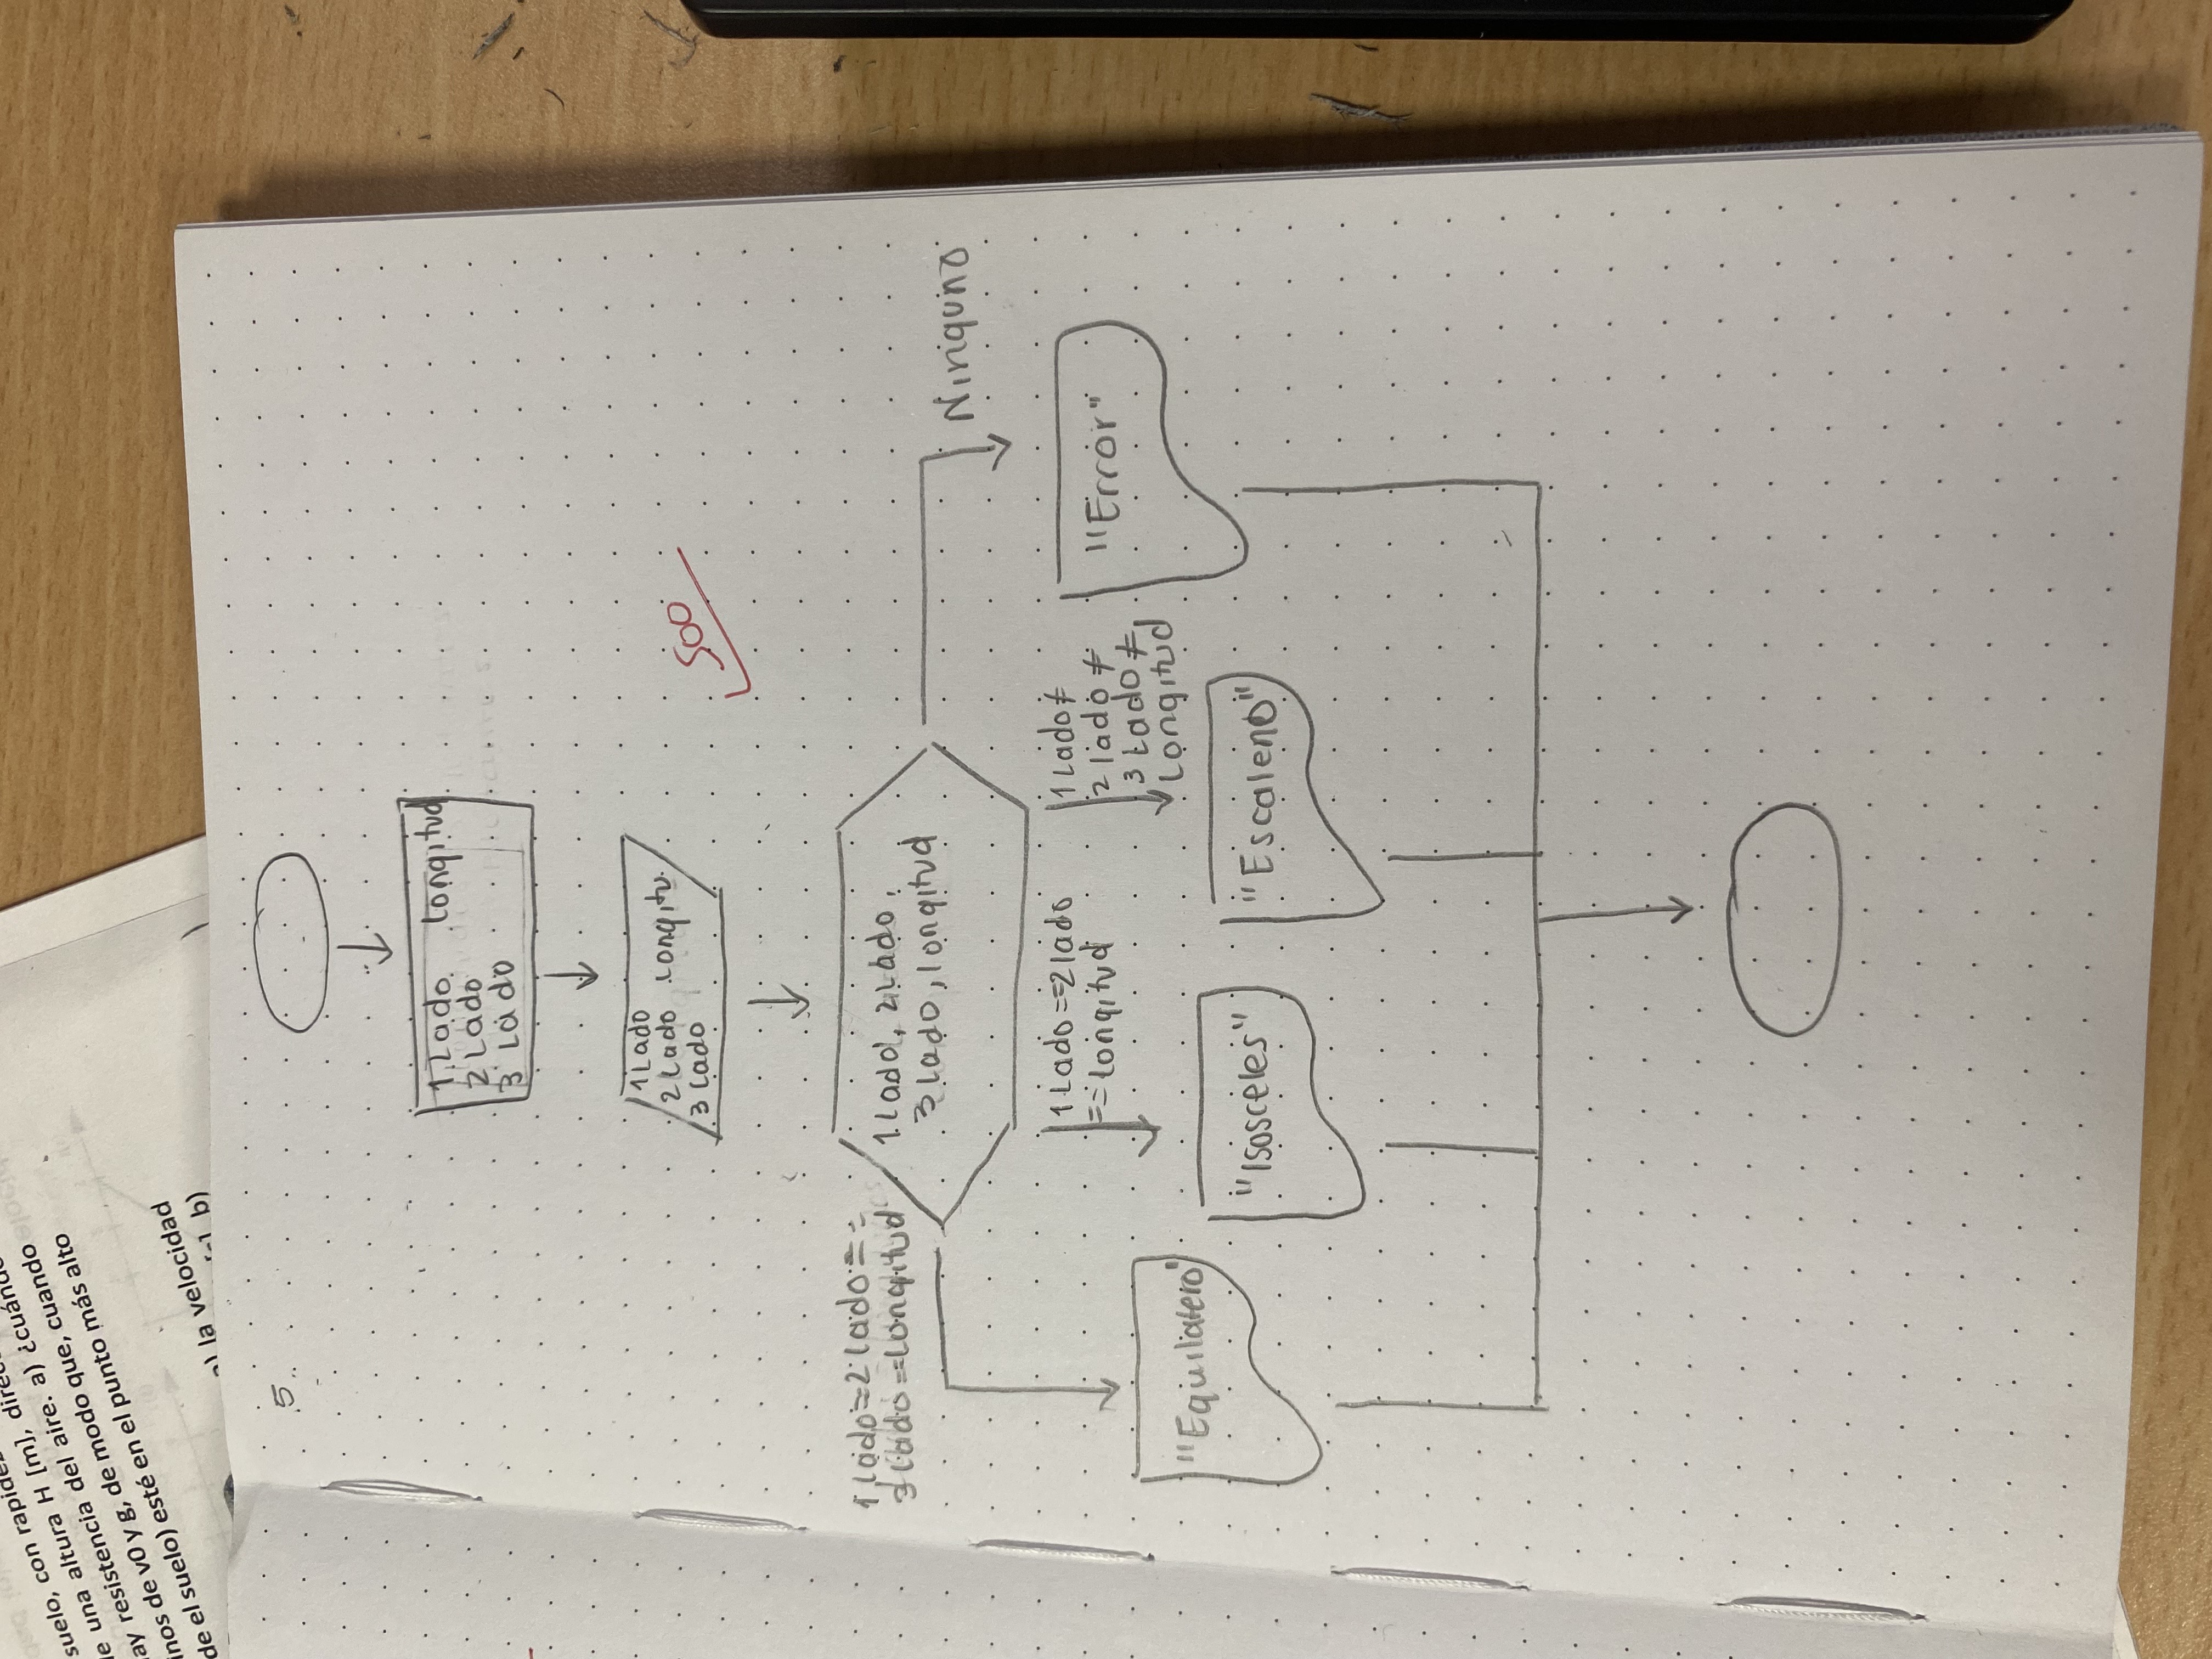 suelo, con rapidez
de una altura H [m], direc
hay resistencia del aire. a) ¿cuándo
inos de v0 y g, de modo que, cuando
de el suelo) esté en el punto más alto
a) la velocidad
b)
5.
1 Lado Longitud
2 Lado
3 Lado
1 Lado
2 Lado Longitu
3 Lado
500
1 Lado=2 Lado==
3 Lado==Longitud
1 Lado, 2 Lado,
3 Lado, longitud
Ninguno
1 Lado==2 lado
==Longitud
1 Lado≠
2 lado ≠
3 Lado ≠
Longitud
"Error"
"Equilatero"
"Isosceles"
"Escaleno"